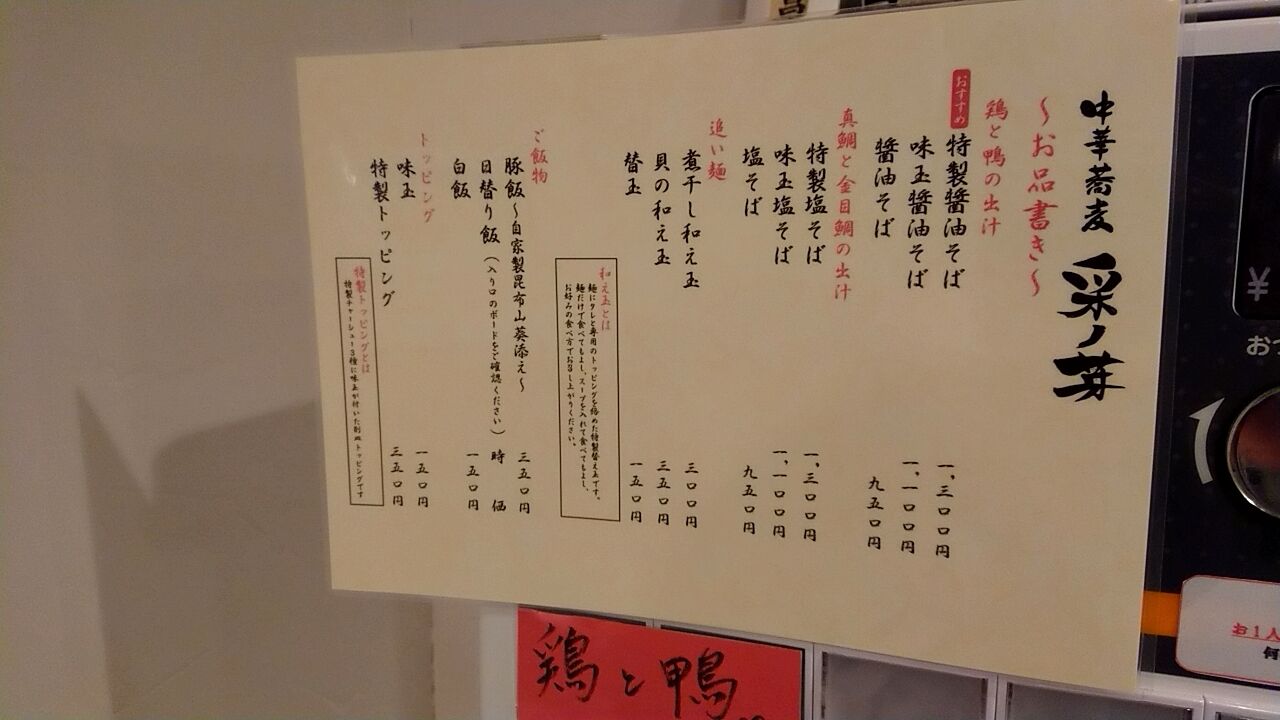 中華蕎麦 采ノ芽
～お品書き～
鶏と鴨の出汁
おすすめ
特製醤油そば 一、三〇〇円
味玉醤油そば 一、一〇〇円
醤油そば 九五〇円
真鯛と金目鯛の出汁
特製塩そば 一、三〇〇円
味玉塩そば 一、一〇〇円
塩そば 九五〇円
追い麺
煮干し和え玉 三〇〇円
貝の和え玉 三五〇円
替玉 一五〇円
和え玉とは
麺にタレと専用のトッピングを絡めた特製替え玉です。
麺だけで食べてもよし、スープを入れて食べてもよし、
お好みの食べ方でお召し上がりください。
ご飯物
豚飯～自家製昆布山葵添え～ 三五〇円
日替り飯（入り口のボードをご確認ください） 時価
白飯 一五〇円
トッピング
味玉 一五〇円
特製トッピング 三五〇円
特製トッピングとは
特製チャーシュー3種に味玉が付いた別皿トッピングです
鶏と鴨
¥
おつ
お1人
何